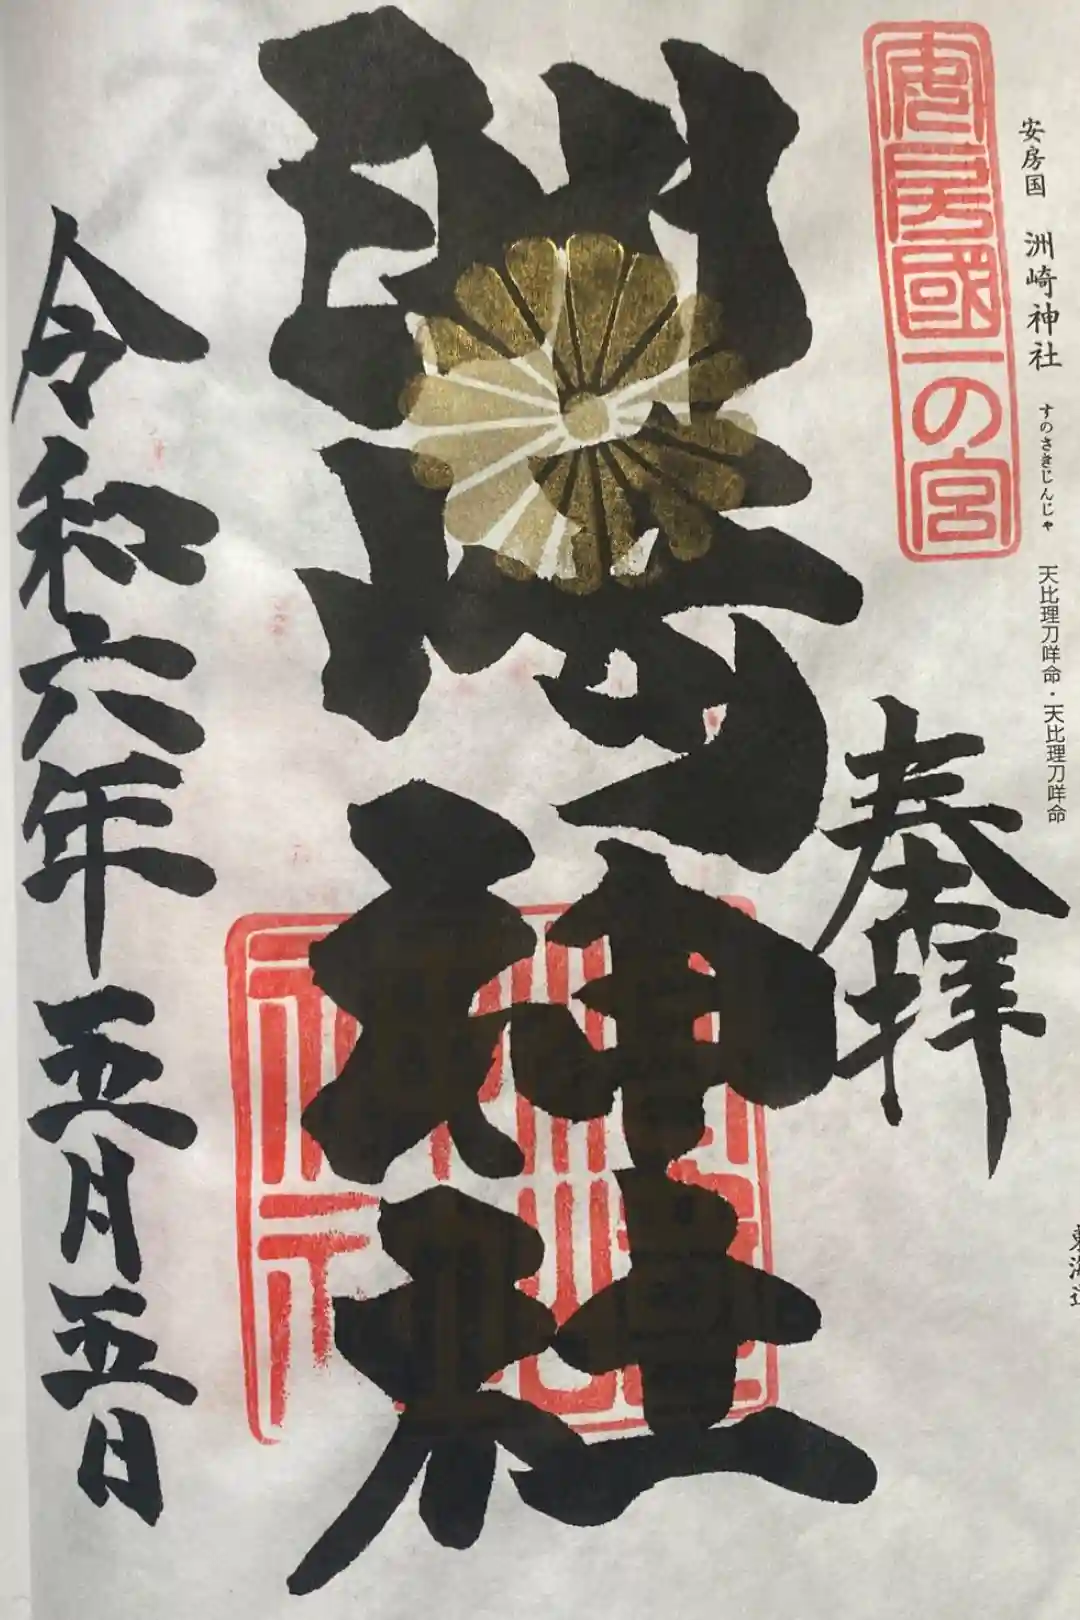 安房国 洲崎神社 すのさきじんじゃ 天比理刀咩命・天比理刀咩命
安房國一の宮
奉拜
洲崎神社
令和六年五月五日